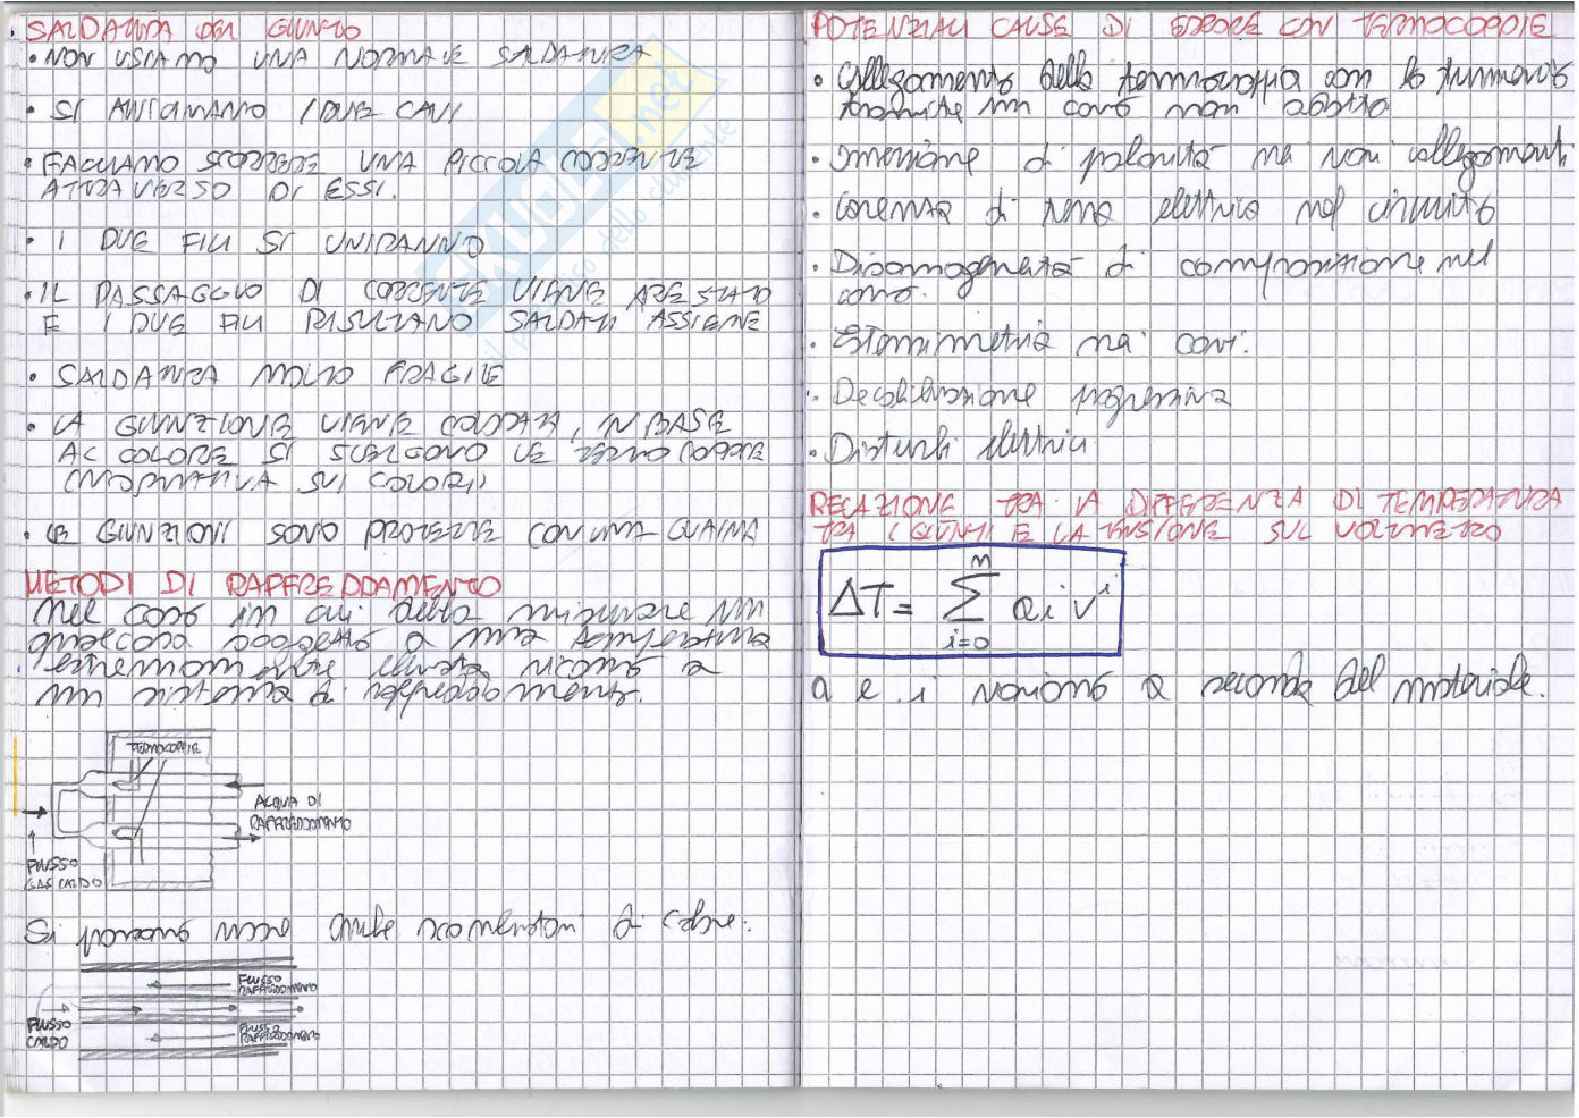 • SALDATURA DEL GIUNTO
• NON USIAMO UNA NORMALE SALDATURA
• SI AVVICINANO I DUE CAVI
• FACCIAMO SCORRERE UNA PICCOLA CORRENTE
ATTRAVERSO DI ESSI.
• I DUE FILI SI UNIRANNO
• IL PASSAGGIO DI CORRENTE VIENE ARRESTATO
E I DUE FILI RISULTANO SALDATI ASSIEME
• SALDATURA MOLTO FRAGILE
• LA GIUNZIONE VIENE COLORATA, IN BASE
AL COLORE SI SCELGONO LE TERMOCOPPIE
(NORMATIVA SUI COLORI)
• LE GIUNZIONI SONO PROTETTE CON UNA GUAINA
METODI DI RAFFREDDAMENTO
Nel caso in cui debba misurare un
qualcosa soggetto a una temperatura
estremamente elevata ricorro a
un sistema di raffreddamento.
TERMOCOPPIE
ACQUA DI
RAFFREDDAMENTO
FLUSSO
GAS CALDO
Si possono usare anche scambiatori di calore:
FLUSSO
RAFFREDDAMENTO
FLUSSO
CALDO
FLUSSO
RAFFREDDAMENTO
POTENZIALI CAUSE DI ERRORE CON TERMOCOPPIE
• Collegamento della termocoppia con lo strumento
tramite un cavo non adatto
• Inversione di polarità nei vari collegamenti
• Correnti di elettrico nel circuito
• Disomogeneità di composizione nel
cavo.
• nei cavi.
• Decalibrazione progressiva
• Disturbi elettrici
RELAZIONE TRA LA DIFFERENZA DI TEMPERATURA
TRA I GIUNTI E LA TENSIONE SUL VOLTMETRO
ΔT = Σ aᵢ vⁱ
n
i=0
a e i variano a seconda del materiale.